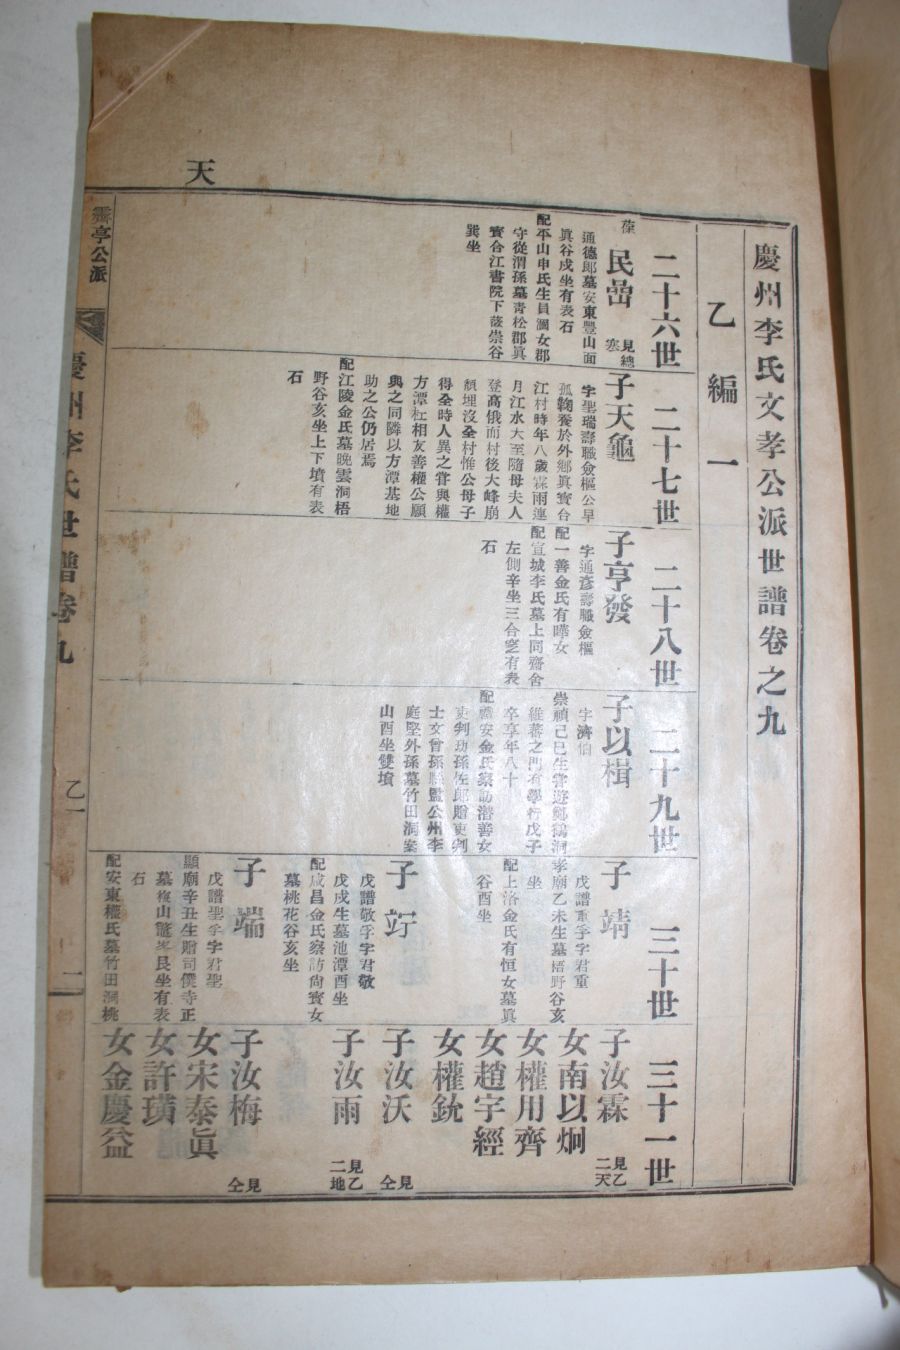 慶州李氏文孝公派世譜卷之九
乙編一
天
二十六世
民嵒
見總
通德郎墓安東豐山面
眞谷戌坐有表石
配平山申氏生員澗女郡
守從渭孫墓青松郡眞
寶合江書院下薩崇谷
巽坐
二十七世
子天龜
字聖瑞壽職僉樞公早
孤鞠養於外鄉眞寶合
江村時年八歲霖雨連
月江水大至隨母夫人
登高俄而村後大峰崩
頹埋沒全村惟公母子
得全時人異之嘗與權
方潭杠相友善權公願
與之同隣以方潭基地
助之公仍居焉
配江陵金氏墓晚雲洞梧
野谷亥坐上下墳有表
石
二十八世
子亨發
字通彥壽職僉樞
配一善金氏有曄女
配宣城李氏墓上同齋舍
左側辛坐三合窆有表
石
二十九世
子以楫
字濟伯
崇禎己巳生嘗遊鄭鶴洞
維蕃之門有學行戊子
卒享年八十
配禮安金氏察訪潛善女
吏判功孫佐郎贈吏判
士文曾孫縣監公州李
庭堅外孫墓竹田洞案
山酉坐雙墳
三十世
子靖
戊譜重孚字君重
孝廟乙未生墓梧野谷亥
坐
配上洛金氏有恒女墓眞
谷酉坐
子竚
戊譜敬孚字君敬
戊戌生墓池潭酉坐
配咸昌金氏察訪尙賓女
墓桃花谷亥坐
子端
戊譜聖孚字君聖
顯廟辛丑生贈司僕寺正
墓梅山鷲峯艮坐有表
石
配安東權氏墓竹田洞桃
三十一世
子汝霖
見乙二天
女南以炯
女權用齊
女趙宇經
女權銃
子汝沃
見仝
子汝雨
見乙二地
子汝梅
見仝
女宋泰眞
女許璜
女金慶益
霽亭公派
慶州李氏世譜卷九
乙一
二